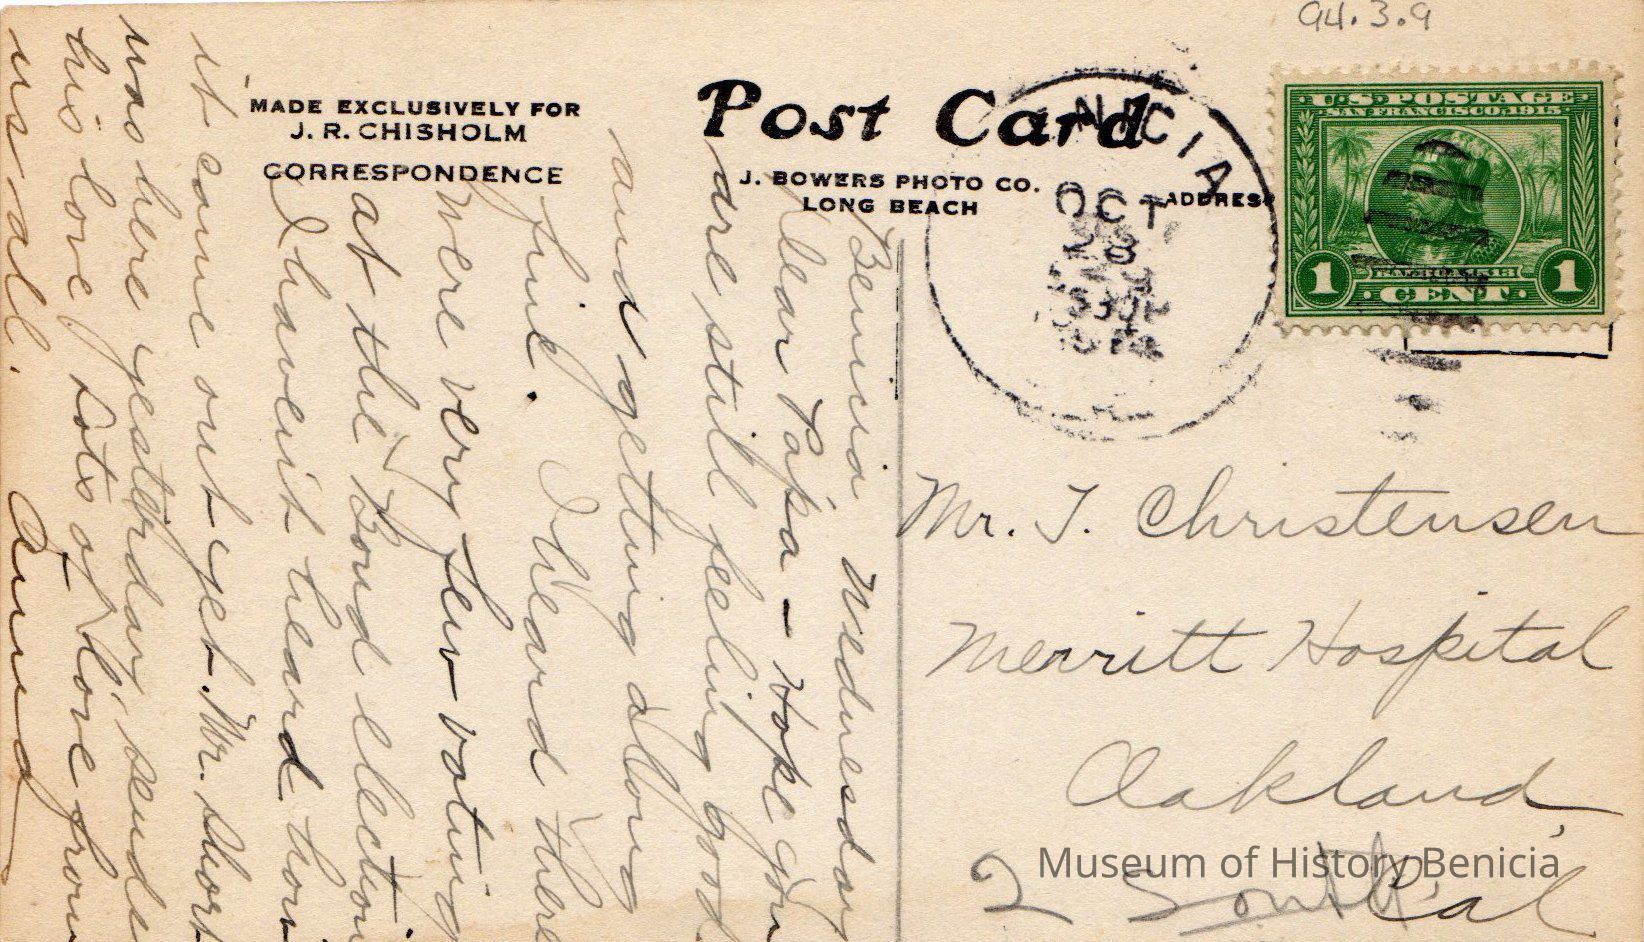 94.3.9
MADE EXCLUSIVELY FOR
J. R. CHISHOLM
CORRESPONDENCE
Post Card
J. BOWERS PHOTO CO.
LONG BEACH
ADDRESS
NICIA
OCT
28
U.S. POSTAGE
SAN FRANCISCO, 1915
BALBOA, 1513
1 CENT 1
Benicia Wednesday
Dear Papa - Hope you
are still feeling good
and getting along
fine. I heard there
were very few voting
at the Bond election
I haven't heard how
it came out yet. Mr. Short
was here yesterday, sends
his love, Lots of love from
us all. Anna
Mr. J. Christensen
Merritt Hospital
Oakland,
Cal
2 South
Museum of History Benicia